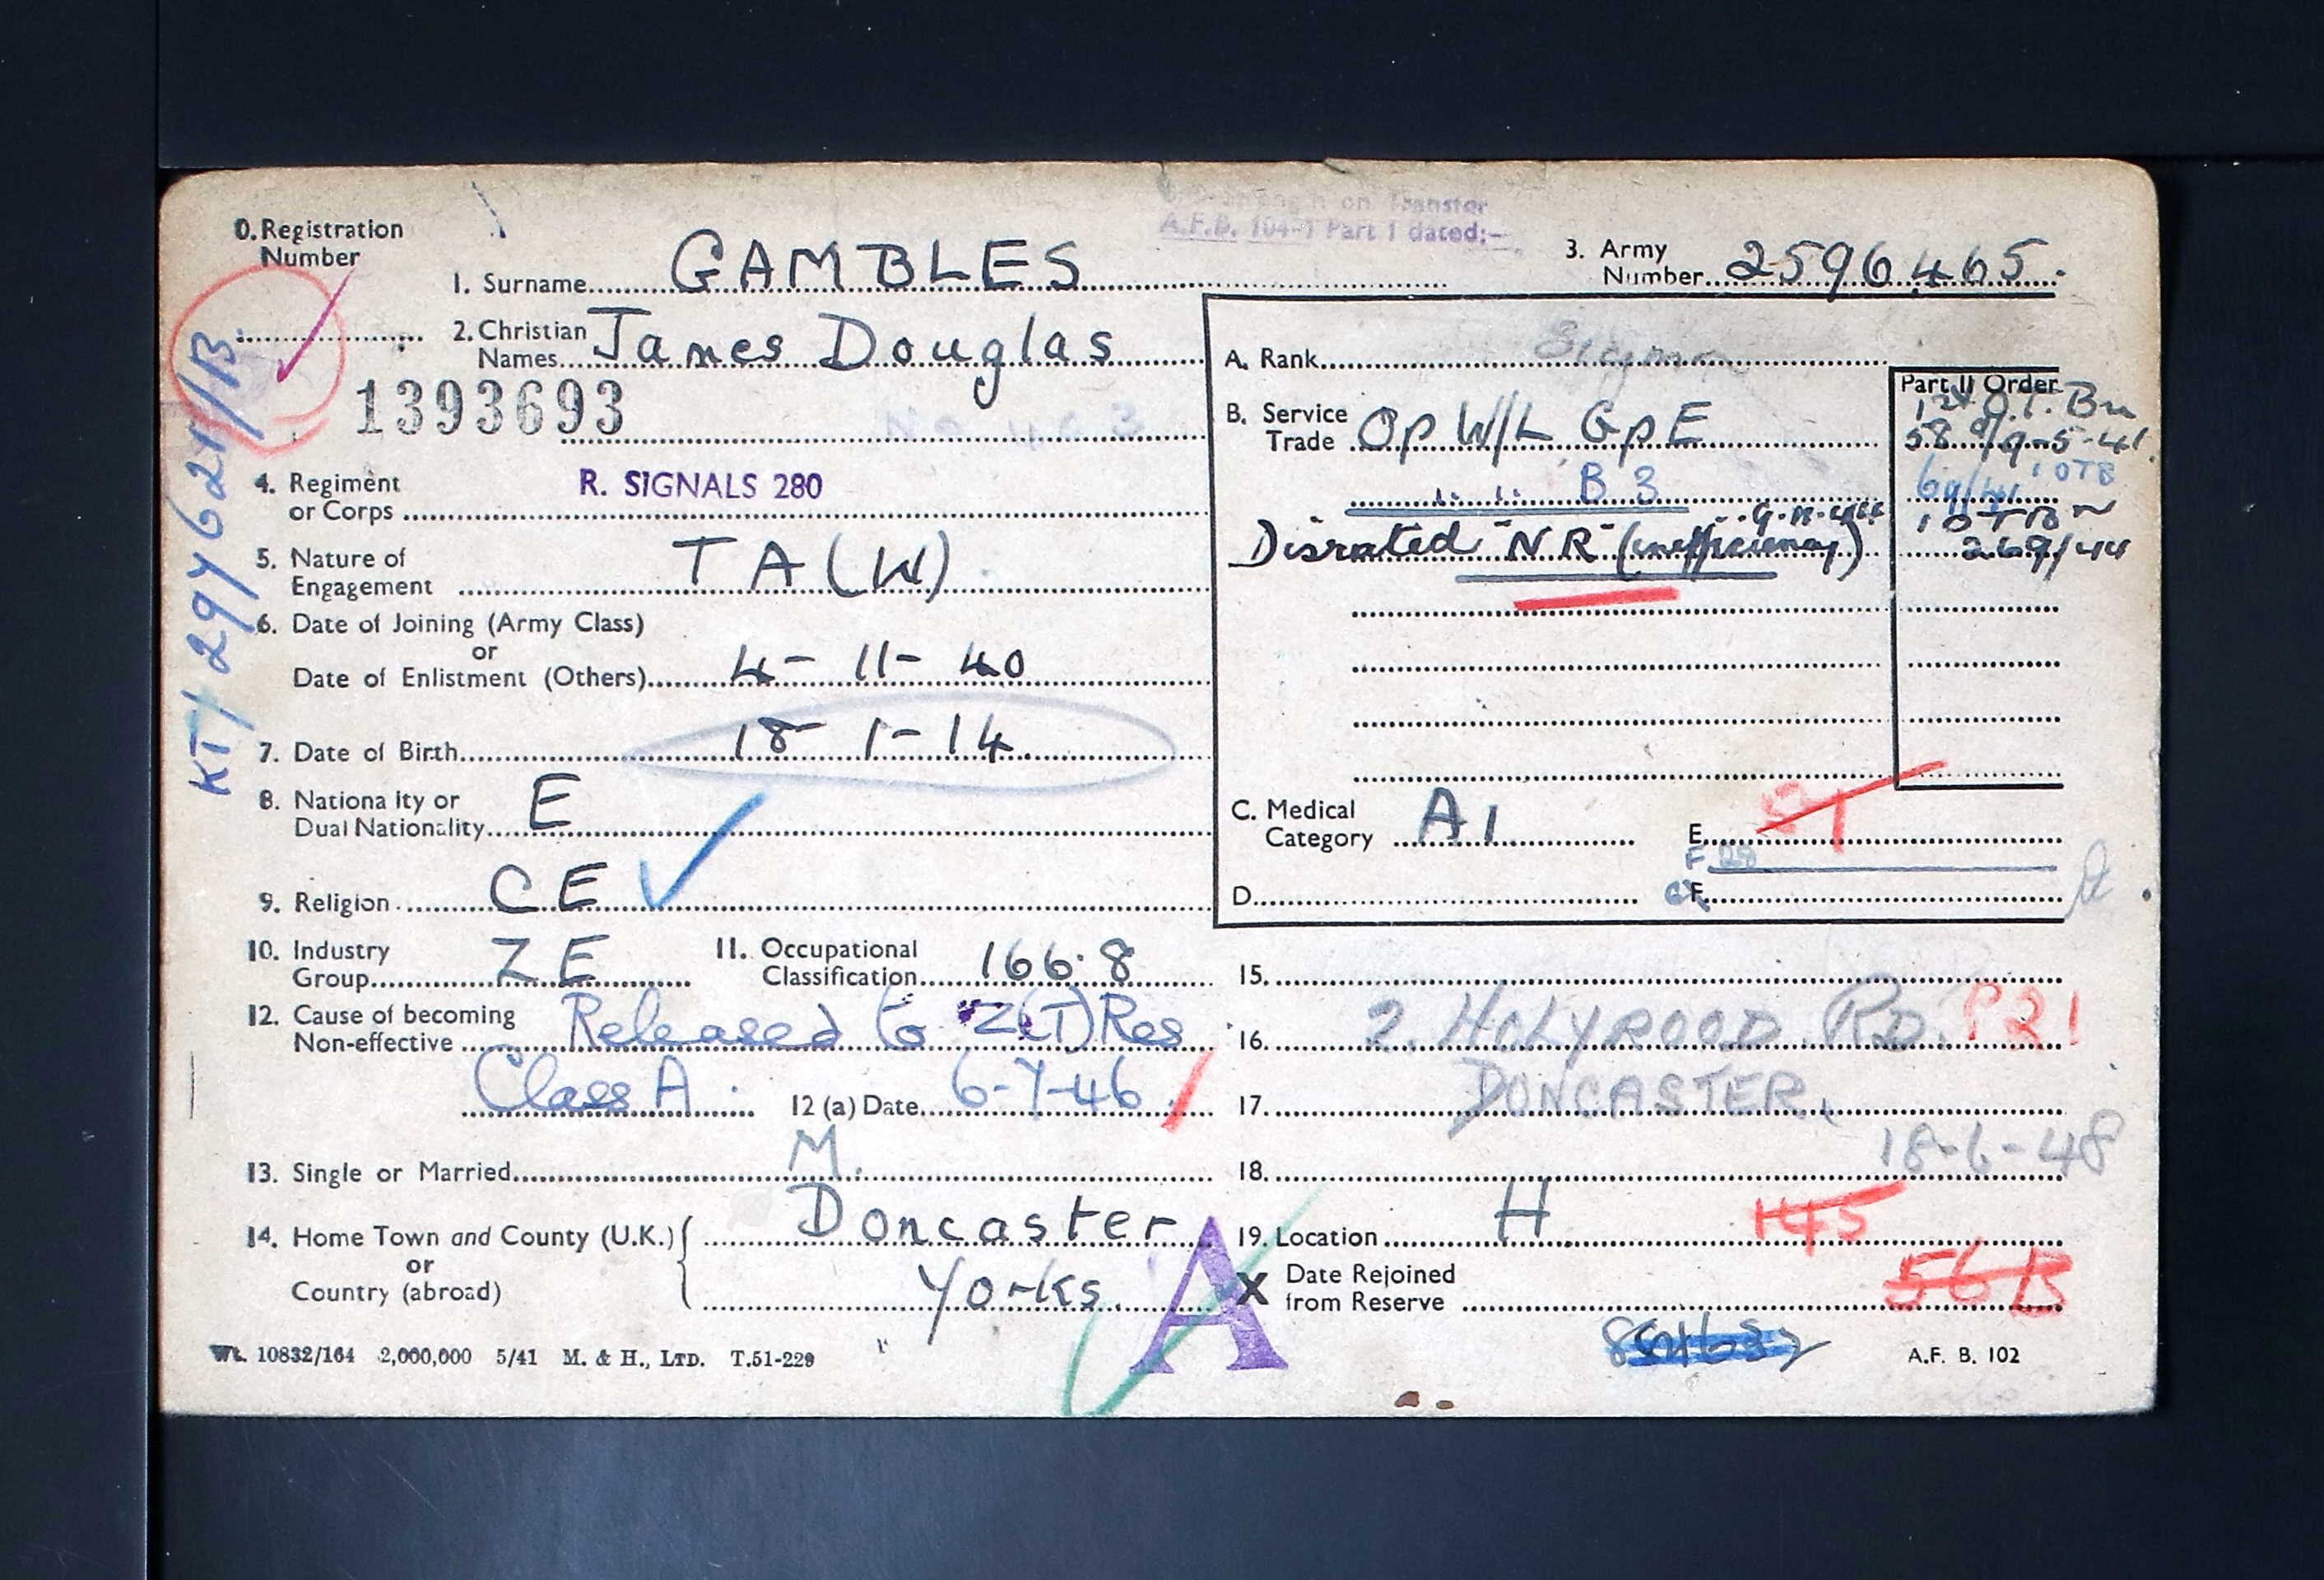 0. Registration Number
on Transfer
A.F.B. 104-1 Part 1 dated:-
1. Surname GAMBLES
3. Army Number 2596465.
2. Christian Names James Douglas
1393693
KT/297621/B
4. Regiment or Corps R. SIGNALS 280
5. Nature of Engagement T A (W)
6. Date of Joining (Army Class)
or
Date of Enlistment (Others) 4- 11- 40
7. Date of Birth 18- 1- 14.
8. Nationality or Dual Nationality E
9. Religion CE
10. Industry Group ZE
11. Occupational Classification 166.8
12. Cause of becoming Non-effective Released to Z(T) Res
Class A. 12 (a) Date 6-7-46
13. Single or Married M.
14. Home Town and County (U.K.) Doncaster
or
Country (abroad) Yorks.
Wt. 10832/164 2,000,000 5/41 M. & H., LTD. T.51-229
A
A. Rank Sigmn
Part II Order
B. Service Trade Op W/L Gp E
58 9-5-41.
" " B 3
69/41 1 OTB
Disrated "NR" (inefficiency)
1 OTBn
269/44
C. Medical Category A1
E.
F
D.
F.
15.
16. 2. HOLYROOD RD. P21
17. DONCASTER.
18. 18-6-48
19. Location H. 145
X Date Rejoined from Reserve 56 B
A.F. B. 102